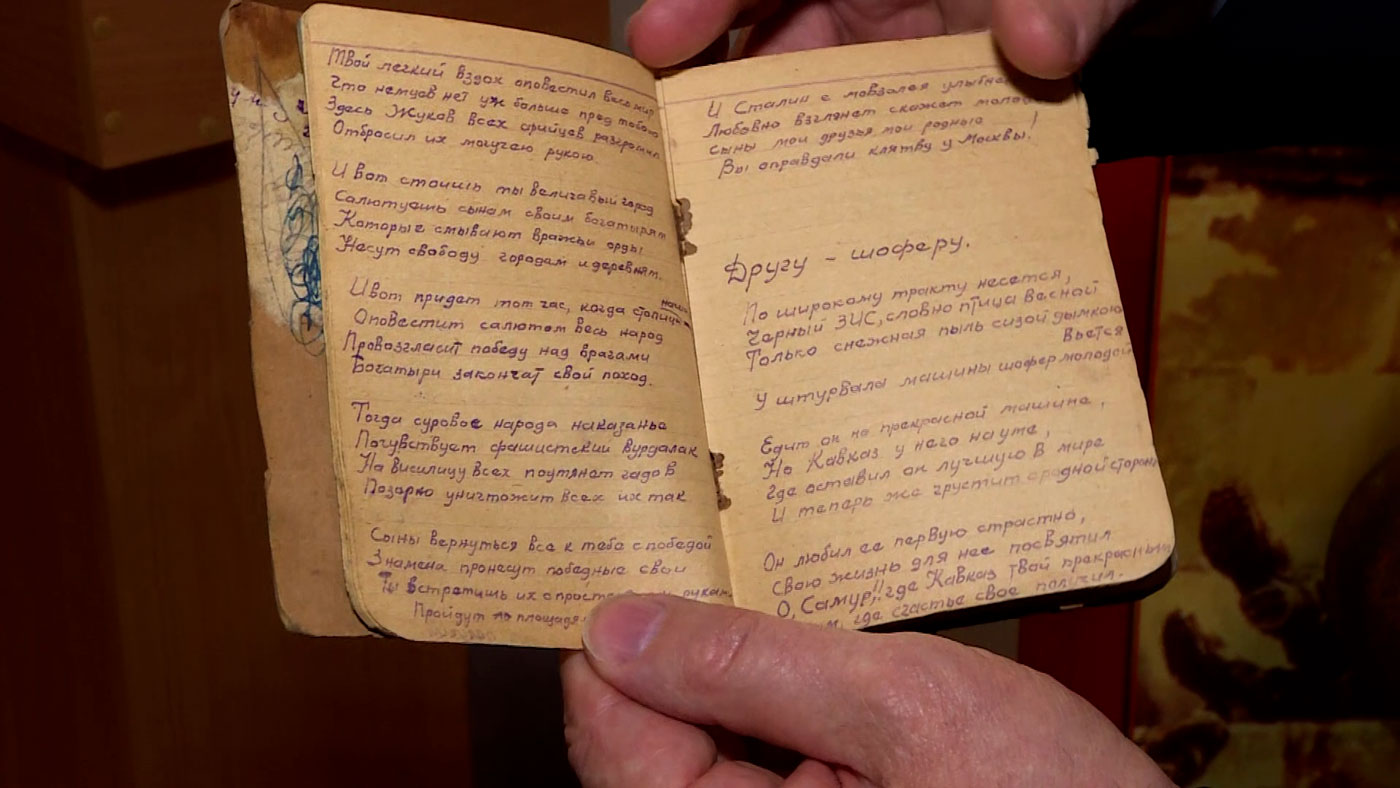 Твой легкий вздох оповестил весь мир
Что немцов нет уж больше пред тобою
Здесь Жуков всех арийцев разгромил
Отбросил их могучею рукою.
И вот стоишь ты величавый город
Салютуешь сынам своим богатырям
Которые смывают вражьи орды
Несут свободу городам и деревням.
И вот придет тот час, когда столица
Оповестит салютом весь народ
Провозгласит победу над врагами
Богатыри закончат свой поход.
Тогда суровое народа наказанье
Почувствует фашистский вурдалак
На висилицу всех подтянет гадов
Позорно уничтожит всех их так
Сыны вернуться все к тебе с победой
Знамена пронесут победные свои
Ты встретишь их с руками
Пройдут по площадя
И Сталин с мовзолея улыбне
Любовно взглянет скажет
сыны мои друзья мои родные !
Вы оправдали клятву у Москвы!
Другу - шоферу.
По широкому тракту несется,
Черный ЗИС, словно птица весной
Только снежная пыль сизой дымкою
Вьется
У штурвала машины шофер молодой
Едит он на прекрасной машине,
Но Кавказ у него на уме,
Где оставил он лучшую в мире
И теперь же грустит о родной стороне
Он любил ее первую страстно,
Свою жизнь для нее посвятил
О, Самур!! где Кавказ твой прекрасный
где счастье свое получил.